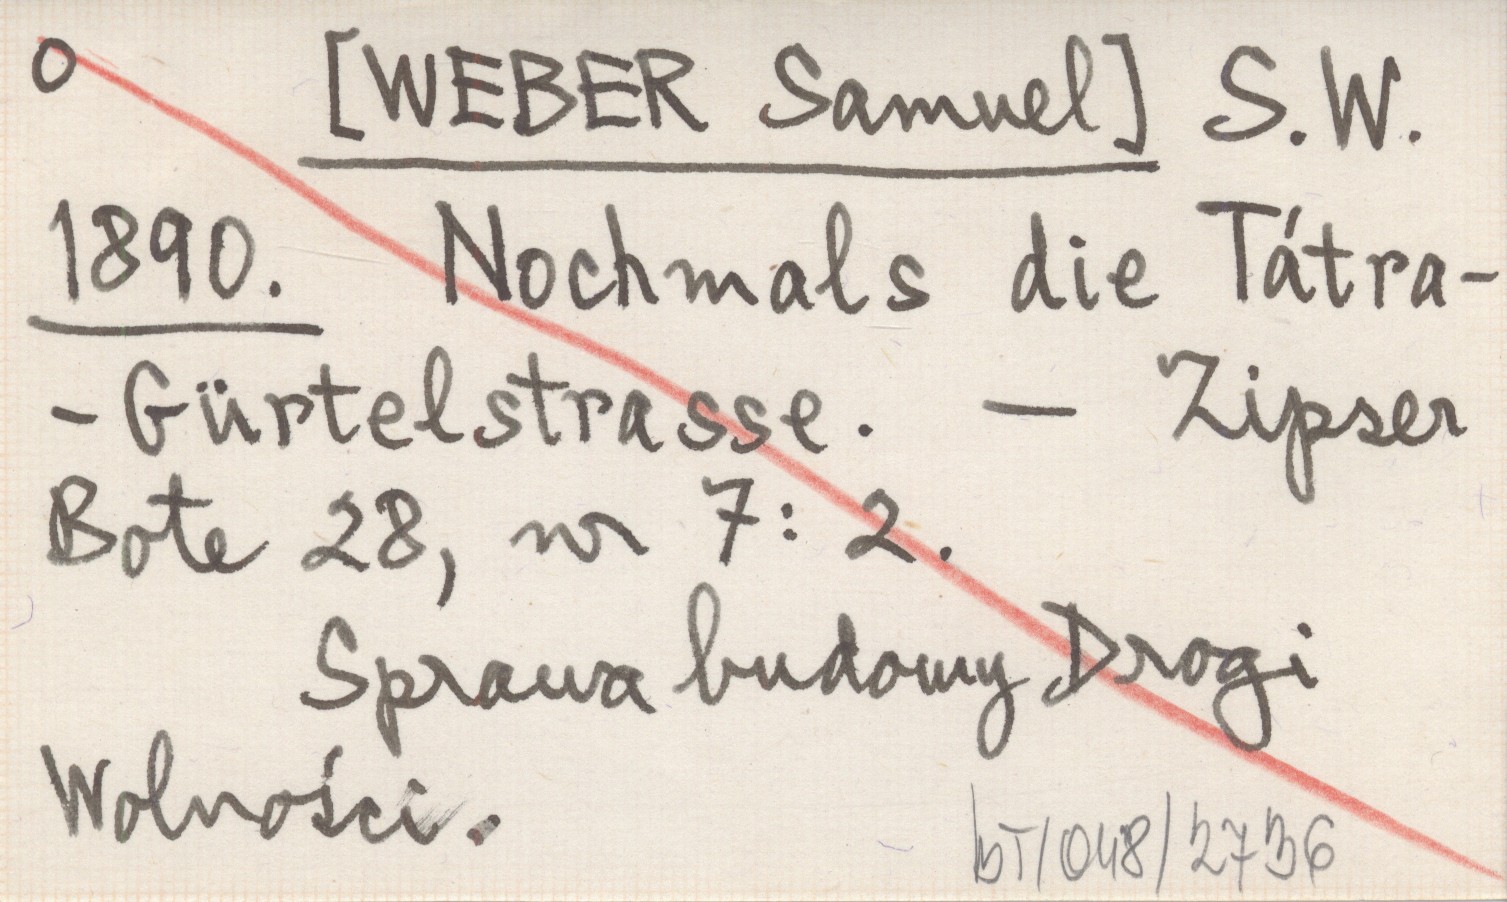 o [WEBER Samuel] S.W.
1890. Nochmals die Tátra-
- Gürtelstrasse. — Zipser
Bote 28, nr 7: 2.
Sprawa budowy Drogi
Wolności.
bT/048/2736